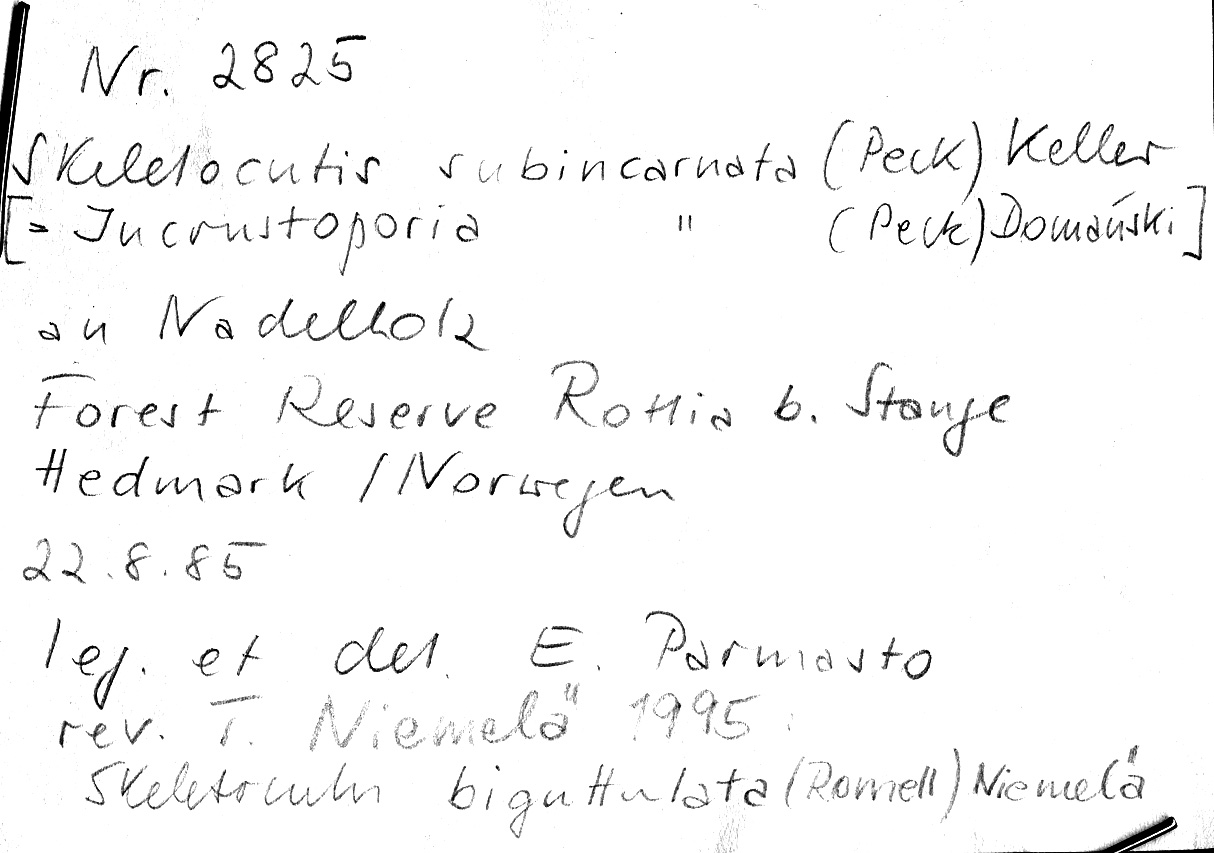 Nr. 2825
Skeletocutis subincarnata (Peck) Keller
[= Incrustoporia " (Peck) Domański]
an Nadelholz
Forest Reserve Rottia b. Stange
Hedmark / Norwegen
22.8.85
leg. et det. E. Parmasto
rev. T. Niemelä 1995
Skeletocutis biguttulata (Romell) Niemelä